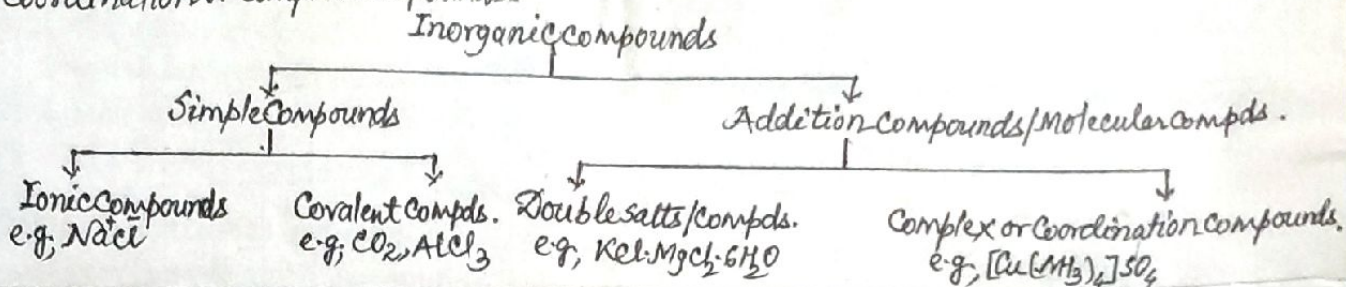 Inorganic compounds
Simple Compounds
Addition Compounds/Molecular Compds.
Ionic Compounds
e.g; Na⁺Cl⁻
Covalent Compds.
e.g; CO₂, AlCl₃
Double salts/Compds.
e.g, KCl·MgCl₂·6H₂O
Complex or Coordination Compounds.
e.g, [Cu(NH₃)₄]SO₄